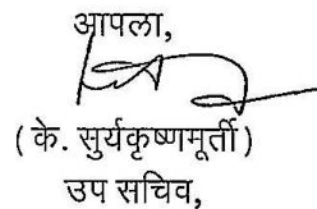 आपला,
(के. सुर्यकृष्णमूर्ती)
उप सचिव,